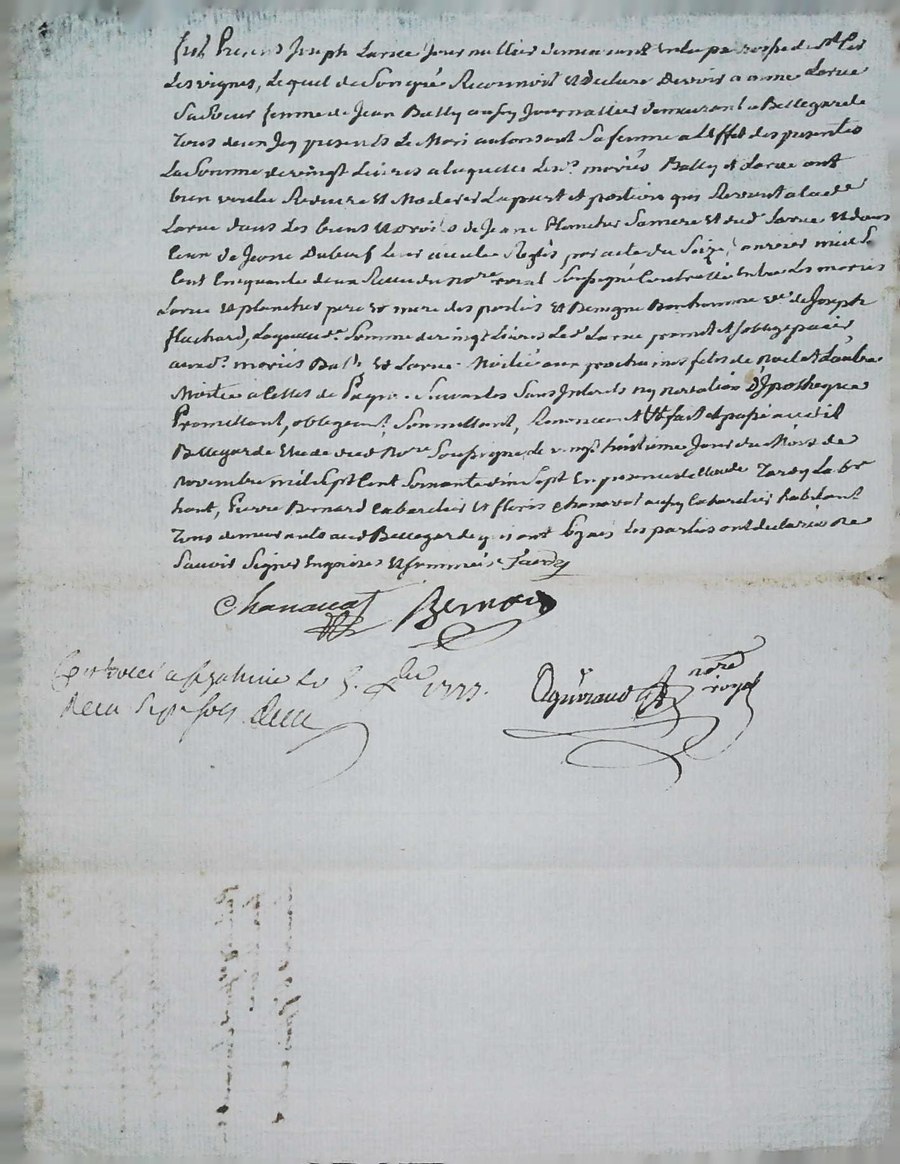 Fut Present Joseph Larue Journallier demeurant en la parroisse de St
Les vignes, Lequel de Son gré Reconnoit et declare Devoir a anne Larue
Sa Soeur femme de Jean Batty aussy Journallier demeurant a Bellegarde
Tous deux Icy presents Le Mari authorisant Sa femme a L'effet des presentes
La Somme de vingt Livres a laquelle Les d. mariés Batty et Larue ont
bien voulu Reduire et Moderer La part et portion qui Revenait a lade
Larue dans Les biens et droits de Jeanne Plancher Sa mere et dud. Larue et dans
Ceux de Jeanne Dubeuf Leur ayeulle Reglés par acte du Seize Janvier mil Sept
Cent Cinquante deux Receu du nore royal Soussigné Contracté Entre Les mariés
Larue et plancher pere et mere des parties et Benigne Bonhomme ve. de Joseph
fluchard, Laquelle de. Somme de vingt Livres Led. Larue promet et s'oblige paier
auxd. mariés Batty et Larue Moitié aux prochaines fetes de Noel et L'autre
Moitié a Celles de Paques Suivantes Sans Interets ny novation D'Ipotheque
Promettant, obligeant, Soumettant, Renonceant &a fait et passé aud.
Bellegarde Etude dud. Nore Soussigné Le vingt huitieme Jour du Mois de
Novembre mil Sept Cent Soixante dix Sept En presence de Claude Tardy
Pierre Bernard Cabartier et fleuris Chanavat aussy Cabartier habitant
Tous demeurants aud. Bellegarde qui ont Signés Les parties ont declaré ne
Savoir Signer Enquises et Sommées Tardy
Chanavat Bernard
Controllé a St Galmier Le 5. Xbre 1777.
Receu Sept Sols
nore
royal